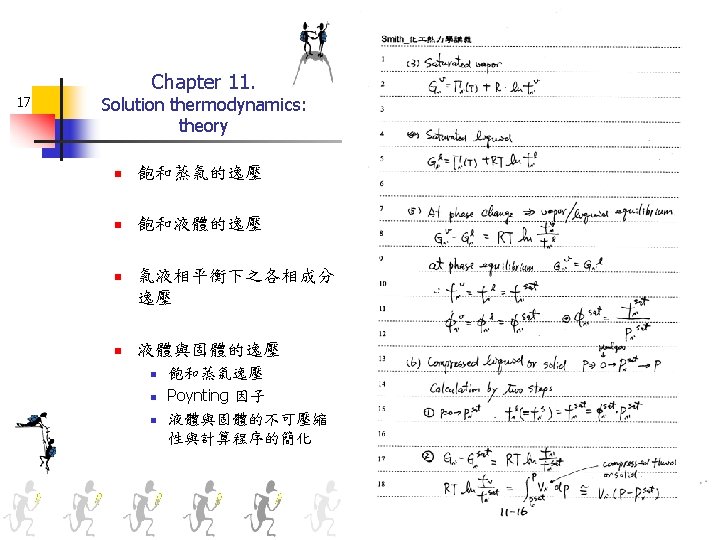 17
Chapter 11.
Solution thermodynamics:
theory
飽和蒸氣的逸壓
飽和液體的逸壓
氣液相平衡下之各相成分
逸壓
液體與固體的逸壓
飽和蒸氣逸壓
Poynting 因子
液體與固體的不可壓縮
性與計算程序的簡化
Smith_化工熱力學講義
1 (3) Saturated vapor
2 Gᵢᵛ = Γᵢ(T) + R· ln fᵢᵛ
3
4 (4) Saturated liquid
5 Gᵢˡ = Γᵢ(T) + RT ln fᵢˡ
6
7 (5) At phase change ⇒ vapor/liquid equilibrium
8 Gᵢᵛ - Gᵢˡ = RT ln fᵢᵛ/fᵢˡ
9 at phase equilibrium Gᵢᵛ = Gᵢˡ
10 ∴ fᵢᵛ = fᵢˡ = fᵢˢᵃᵗ
11 φᵢᵛ = φᵢˡ = φᵢˢᵃᵗ φᵢˢᵃᵗ = fᵢˢᵃᵗ/Pᵢˢᵃᵗ
12
13 (6) Compressed liquid or solid P⇒0→Pˢᵃᵗ→P
14 Calculation by two steps
15 ① P0→Pˢᵃᵗ fᵢˢᵃᵗ = φᵢˢᵃᵗ·Pᵢˢᵃᵗ
16
17 ② Gᵢ - Gᵢˢᵃᵗ = RT ln fᵢ/fᵢˢᵃᵗ compressed liquid
or solid
18 RT ln fᵢ/fᵢˢᵃᵗ = ∫ Vᵢ dP ≅ Vᵢ(P-Pˢᵃᵗ)
11-16